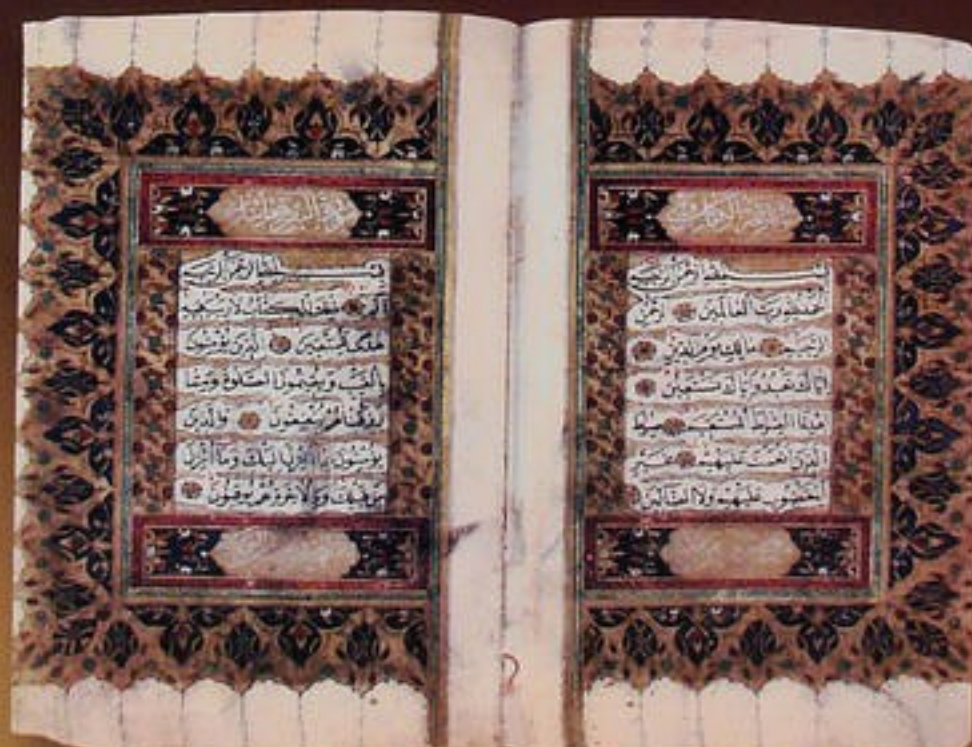 بسم الله الرحمن الرحيم
الحمد لله رب العالمين الرحمن
الرحيم مالك يوم الدين
اياك نعبد واياك نستعين
اهدنا الصراط المستقيم صراط
الذين انعمت عليهم غير
المغضوب عليهم ولا الضالين
سورة البقرة
بسم الله الرحمن الرحيم
الم ذلك الكتاب لا ريب فيه
هدى للمتقين الذين يؤمنون
بالغيب ويقيمون الصلوة ومما
رزقناهم ينفقون والذين
يؤمنون بما انزل اليك وما انزل
من قبلك وبالاخرة هم يوقنون